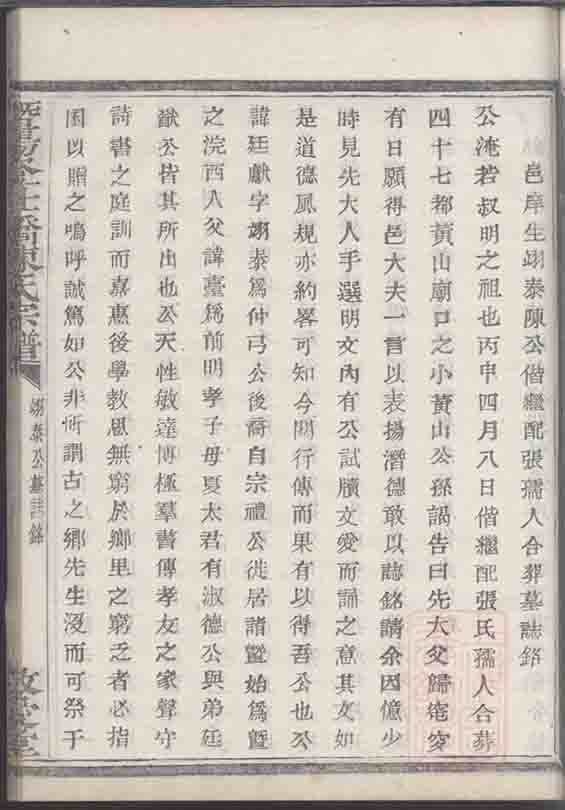 邑庠生翊泰陳公偕繼配張孺人合葬墓誌銘
公淹若叔明之祖也丙申四月八日偕繼配張氏孺人合葬
四十七都黃山廟口之小黃山公孫謁告曰先大父歸窀穸
有日願得邑大夫一言以表揚潛德敢以誌銘請余因憶少
時見先大人手選明文內有公試牘文愛而誦之意其文如
是道德風規亦約畧可知今閱行傳而果有以得吾公也公
諱廷獻字翊泰爲仲弓公後裔自宗禮公徙居諸暨始爲暨
之浣西人父諱臺爲前明孝子母夏太君有淑德公與弟廷
猷公皆其所出也公天性敏達博極羣書傳孝友之家聲守
詩書之庭訓而嘉惠後學教思無窮於鄉里之窮乏者必指
囷以贈之嗚呼誠篤如公非所謂古之鄉先生沒而可祭于
宅士喬陳氏宗譜
翊泰公墓誌銘